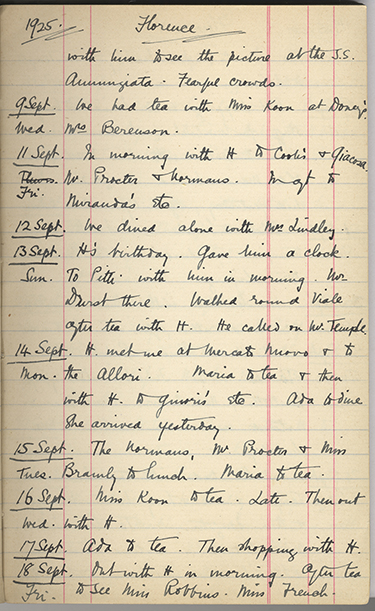 1925. Florence
with him to see the picture at the S.S.
Annunziata. Fearful crowds.
9 Sept. We had tea with Miss Koon at Doney's
Wed. Mrs Berenson.
11 Sept. In morning with H to Cook's & Giacosa.
Thurs. Mr. Procter & Normans. In aft to
Fri. Miranda's etc.
12 Sept. We dined alone with Mrs Lindley.
13 Sept. H's birthday. Gave him a clock.
Sun. To Pitti with him in morning. Mr
Durst there. Walked round Viale
after tea with H. He called on Mr Temple.
14 Sept. H. met me at Mercato Nuovo & to
Mon. the Allori. Maria to tea & then
with H. to Ginori's etc. Ada to dine
She arrived yesterday.
15 Sept. The Normans, Mr Procter & Miss
Tues. to lunch. Maria to tea.
16 Sept. Miss Koon to tea. Late. Then out
Wed. with H.
17 Sept. Ada to tea. Then shopping with H.
18 Sept. Out with H in morning. After tea
Fri. to see Miss Robbins. Miss French